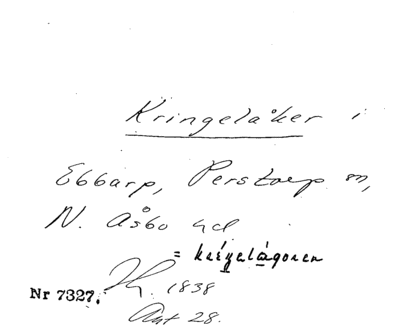 Kringelåker i
Ebbarp, Perstorp sn,
N. Åsbo hd
= kré̱gelå̱goren
Nr 7327. 1838
Akt 28.